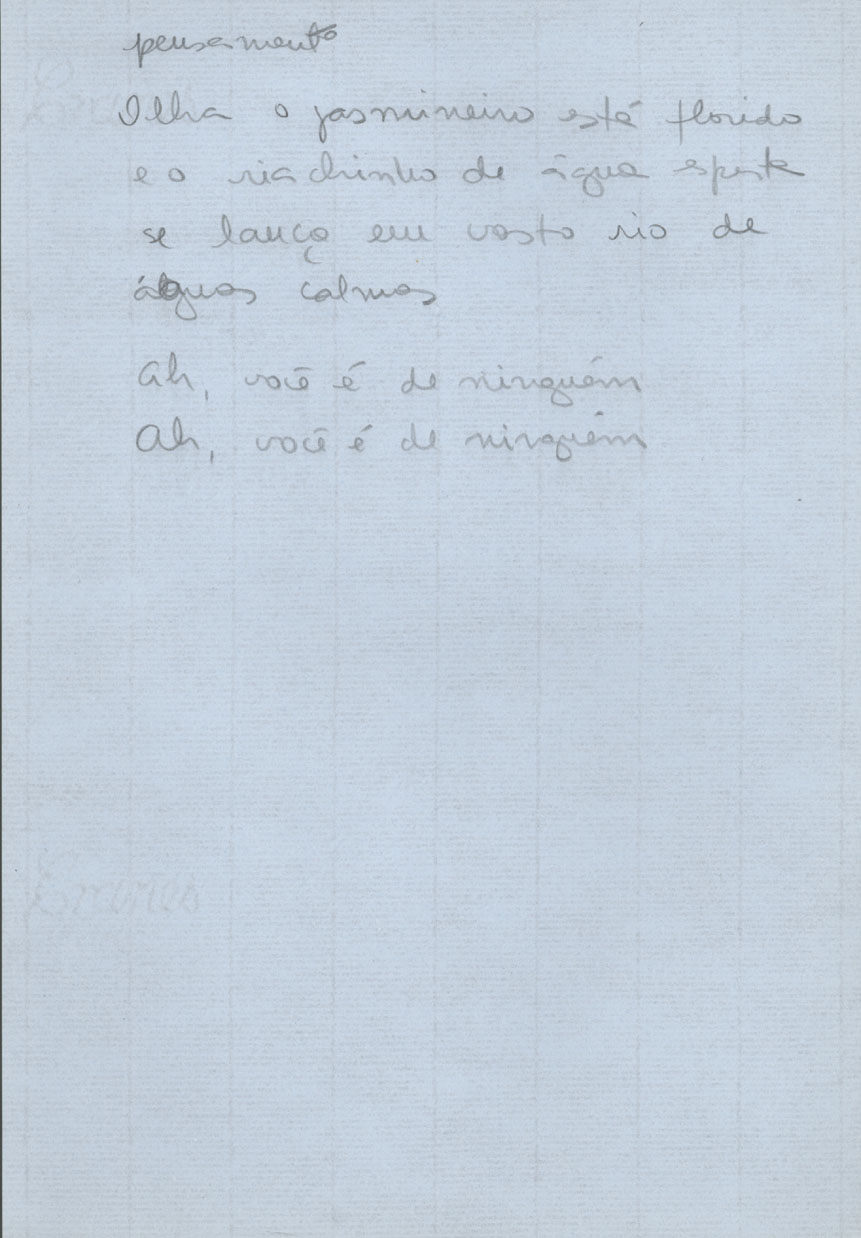 pensamento
Olha o jasmineiro está florido
e o riachinho de água esperta
se lança em vasto rio de
águas calmas
Ah, você é de ninguém
Ah, você é de ninguém